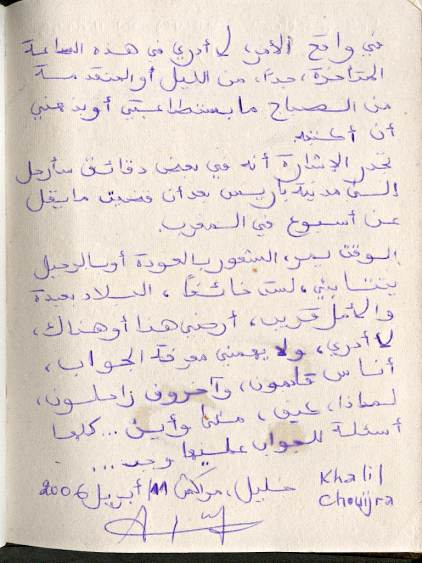 في واقع الأمر، لا أدري في هذه الساعة
المتأخرة، جدا، من الليل أو المتقدمة
من الصباح ما بستطاعتي أو بذهني
أن أكتبه.
تجدر الإشارة أنه في بعض دقائق سأرحل
إلى مدينة باريس بعد أن قضيت ما يقل
عن أسبوع في المغرب.
الوقت يمر، الشعور بالعودة أو بالرحيل
ينتابني، لست خائفا، البلاد بعيدة
والأمل قريب، أرضي هنا أو هناك،
لا أدري، ولا يهمني معرفة الجواب،
أناس قادمون، وآخرون راحلون،
لماذا، عن، متى وأين... كلها
أسئلة الجواب عليها وجد...
خليل، مراكش 11/ أبريل 2006
Khalil
Chouijra